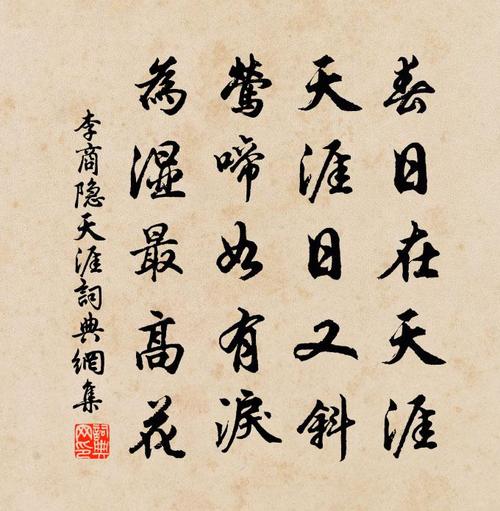 春日在天涯
天涯日又斜
鶯啼如有淚
為濕最高花
李商隐天涯詞典網集
詞典网印